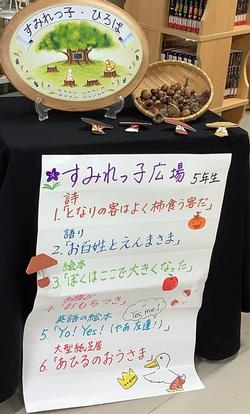 すみれっ子・ひろば
BOOK WORLD
すみれっ子広場 5年生
詩
1.「となりの客はよく柿食う客だ」
語り
2.「お百姓とえんまさま」
絵本
3.「ぼくはここで大きくなった」
手遊び
4.「おもちつき」
英語の絵本
Yes, me!
5.「Yo! Yes! (やあ友達!)」
大型紙芝居
6.「あひるのおうさま」